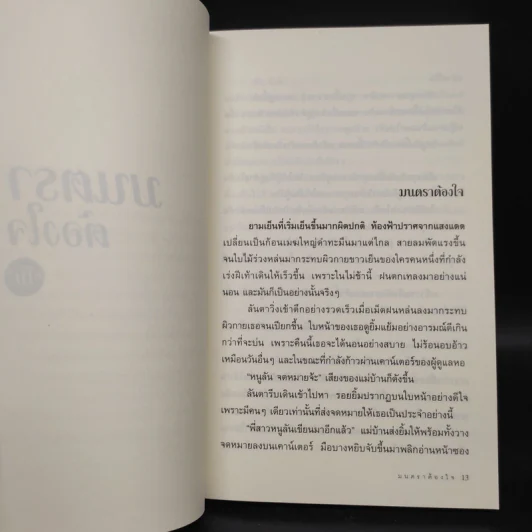 มนตราต้องใจ
ยามเย็นที่เริ่มเย็นขึ้นมากผิดปกติ ท้องฟ้าปราศจากแสงแดด
เปลี่ยนเป็นก้อนเมฆใหญ่ดำทะมึนมาแต่ไกล สายลมพัดแรงขึ้น
จนใบไม้ร่วงหล่นมากระทบผิวกายขาวเย็นของใครคนหนึ่งที่กำลัง
เร่งฝีเท้าเดินให้เร็วขึ้น เพราะในไม่ช้านี้ ฝนตกเทลงมาอย่างแน่
นอน และมันก็เป็นอย่างนั้นจริงๆ
ลันตาวิ่งเข้าตึกอย่างรวดเร็วเมื่อเม็ดฝนหล่นลงมากระทบ
ผิวกายเธอจนเปียกชื้น ใบหน้าของเธอดูยิ้มแย้มอย่างอารมณ์ดีเกิน
กว่าที่จะบ่น เพราะคืนนี้เธอจะได้นอนอย่างสบาย ไม่ร้อนอบอ้าว
เหมือนวันอื่นๆ และในขณะที่กำลังก้าวผ่านเคาน์เตอร์ของผู้ดูแลหอ
"หนูลัน จดหมายจ้ะ" เสียงของแม่บ้านก็ดังขึ้น
ลันตารีบเดินเข้าไปหา รอยยิ้มปรากฏบนใบหน้าอย่างดีใจ
เพราะมีคนๆ เดียวเท่านั้นที่ส่งจดหมายให้เธอเป็นประจำอย่างนี้
"พี่สาวหนูลันเขียนมาอีกแล้ว" แม่บ้านส่งยิ้มให้พร้อมทั้งวาง
จดหมายลงบนเคาน์เตอร์ มือบางหยิบจับขึ้นมาพลิกอ่านหน้าซอง
มนตราต้องใจ 13